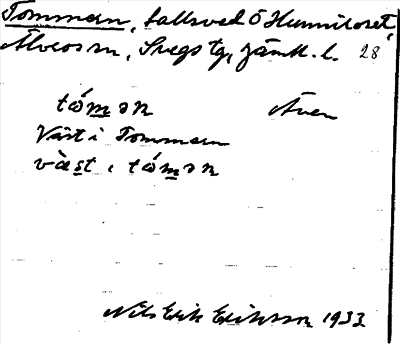 Tommern, tallsved Ö Hunnikoset,
Älvros sn, Svegs tg, Jämtl. l. 28
tómən Även
Väst i Tommern
vàst i tómən
Nils Erik Eriksson 1933